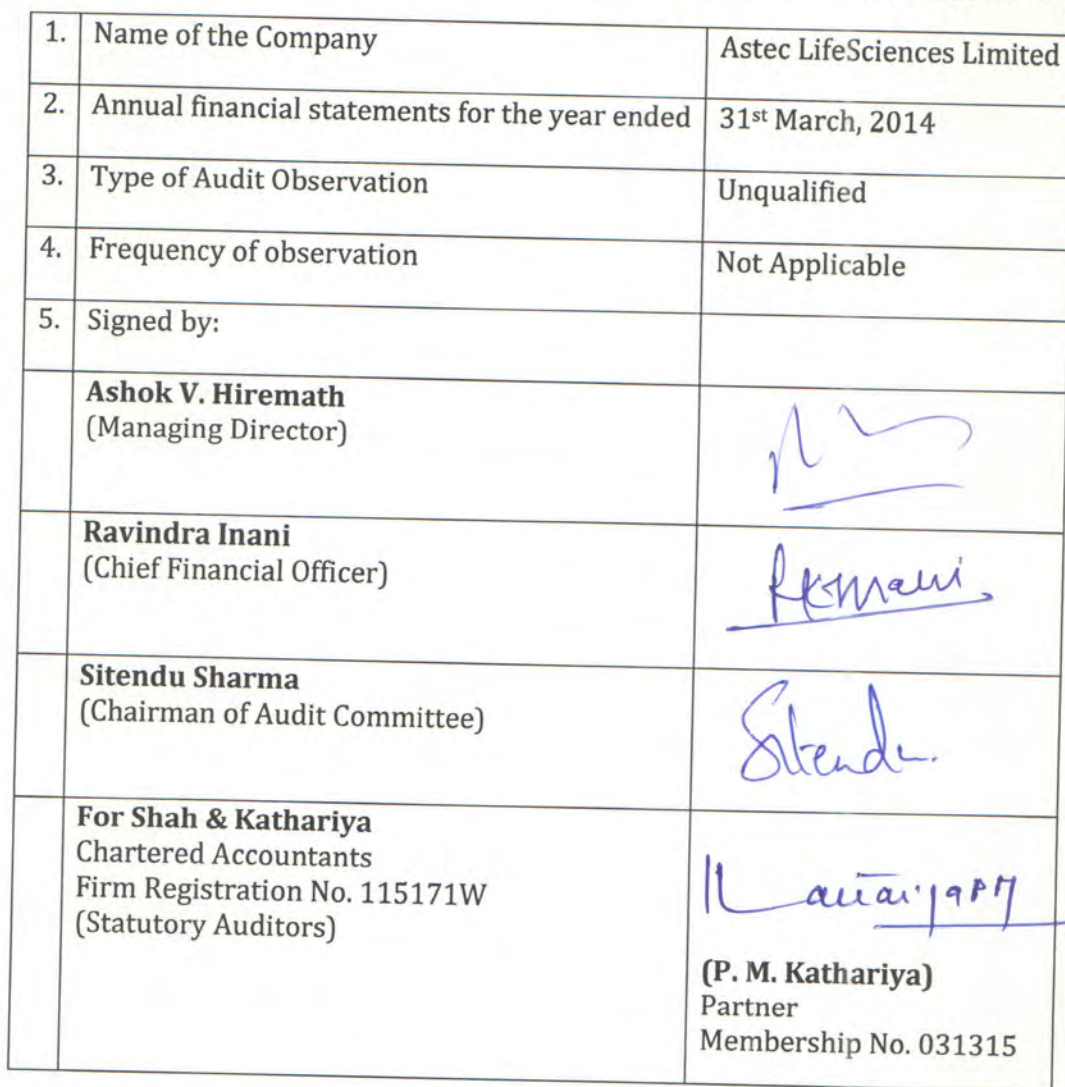 1. Name of the Company Astec LifeSciences Limited
2. Annual financial statements for the year ended 31st March, 2014
3. Type of Audit Observation Unqualified
4. Frequency of observation Not Applicable
5. Signed by:
Ashok V. Hiremath
(Managing Director)
Ravindra Inani
(Chief Financial Officer)
Sitendu Sharma
(Chairman of Audit Committee)
Sitendu.
For Shah & Kathariya
Chartered Accountants
Firm Registration No. 115171W
(Statutory Auditors)
(P. M. Kathariya)
Partner
Membership No. 031315